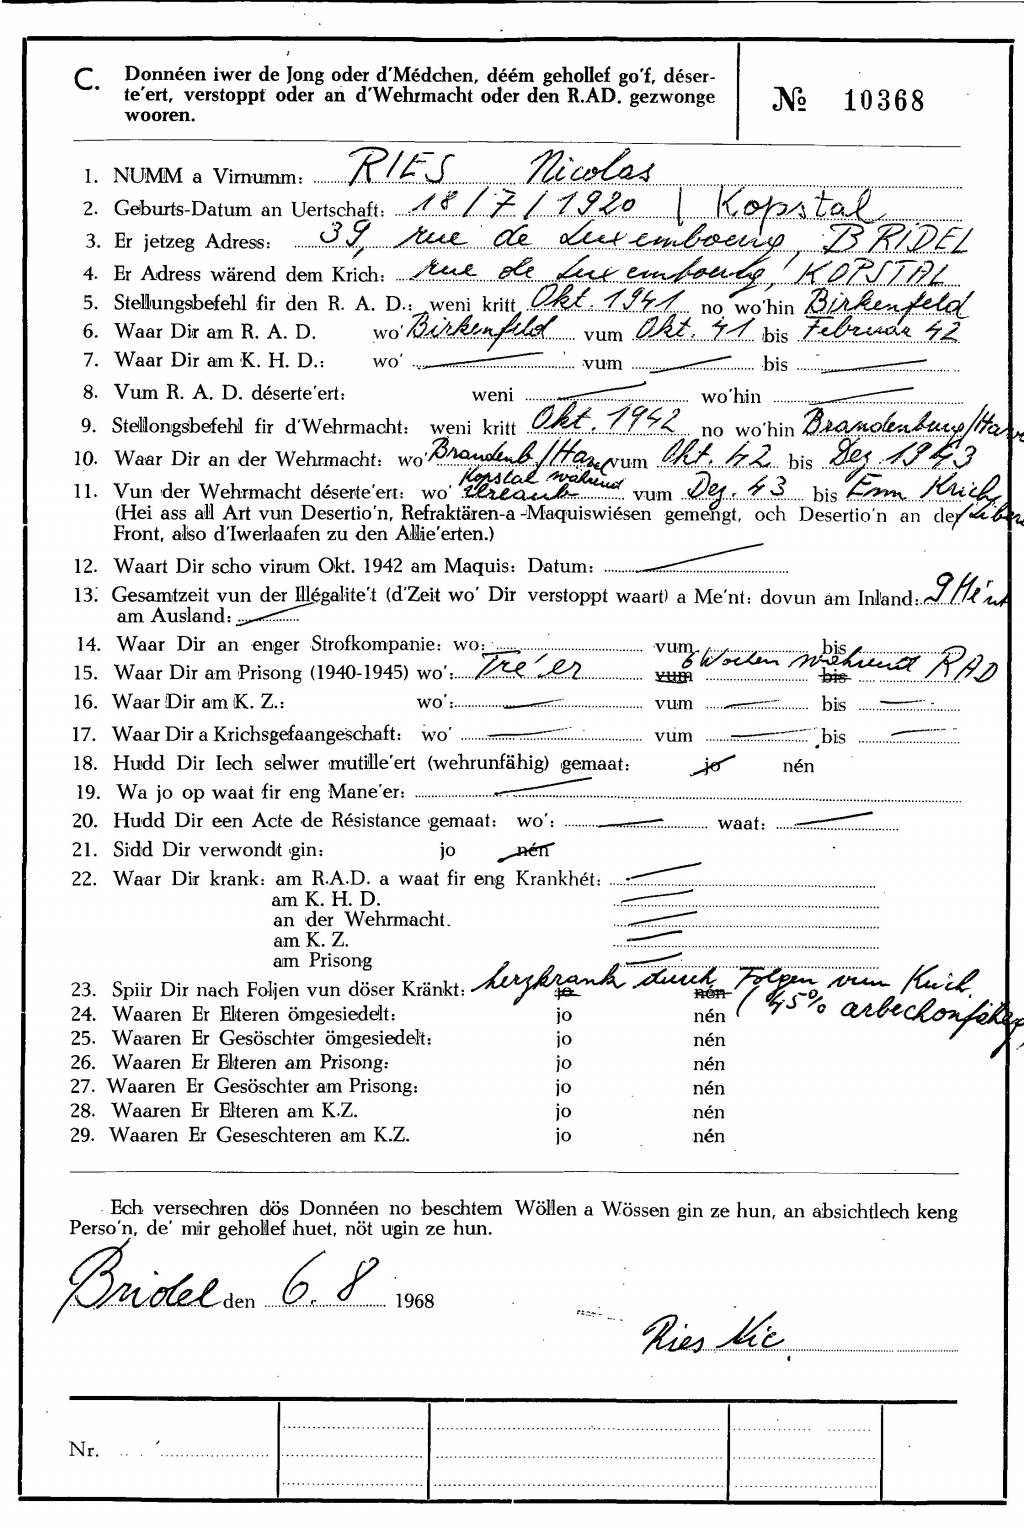 C. Donnéen iwer de Jong oder d'Médchen, déém gehollef go'f, déser-
te'ert, verstoppt oder an d'Wehrmacht oder den R.AD. gezwonge
wooren.
№ 10368
1. NUMM a Virnumm: RIES Nicolas
2. Geburts-Datum an Uertschaft: 18/7/1920 | Kopstal
3. Er jetzeg Adress: 39, rue de Luxembourg, BRIDEL
4. Er Adress wärend dem Krich: rue de Luxembourg, KOPSTAL
5. Stellungsbefehl fir den R. A. D.: weni kritt Okt. 1941 no wo'hin Birkenfeld
6. Waar Dir am R. A. D. wo' Birkenfeld vum Okt. 41 bis Februar 42
7. Waar Dir am K. H. D.: wo' vum bis
8. Vum R. A. D. déserte'ert: weni wo'hin
9. Stelllongsbefehl fir d'Wehrmacht: weni kritt Okt. 1942 no wo'hin Brandenburg/Have
10. Waar Dir an der Wehrmacht: wo' Brandenb/Havel vum Okt. 42 bis Dez 1943
Kopstal während
11. Vun der Wehrmacht déserte'ert: wo' Urlaub vum Dez. 43 bis Enn Krich
(Hei ass all Art vun Desertio'n, Refraktären-a-Maquiswiésen gemengt, och Desertio'n an der
Front, also d'Iwerlaafen zu den Allie'erten.)
12. Waart Dir scho virum Okt. 1942 am Maquis: Datum:
13. Gesamtzeit vun der Illégalite't (d'Zeit wo' Dir verstoppt waart) a Me'nt: dovun am Inland: 9 Mé'nt
am Ausland:
14. Waar Dir an enger Strofkompanie: wo: vum bis
6 Wochen während RAD
15. Waar Dir am Prison­g (1940-1945) wo': Tre'er vum bis
16. Waar Dir am K. Z.: wo': vum bis
17. Waar Dir a Krichsgefaangeschaft: wo' vum bis
18. Hudd Dir Iech selwer mutille'ert (wehrunfähig) gemaat: jo nén
19. Wa jo op waat fir eng Mane'er:
20. Hudd Dir een Acte de Résistance gemaat: wo': waat:
21. Sidd Dir verwondt gin: jo nén
22. Waar Dir krank: am R.A.D. a waat fir eng Krankhét:
am K. H. D.
an der Wehrmacht.
am K. Z.
am Prisong
23. Spiir Dir nach Foljen vun döser Kränkt: jo nén herzkrank durch Folgen vum Krich.
(45% arbechonfäheg)
24. Waaren Er Elteren ömgesiedelt: jo nén
25. Waaren Er Gesöschter ömgesiedelt: jo nén
26. Waaren Er Elteren am Prisong: jo nén
27. Waaren Er Gesöschter am Prisong: jo nén
28. Waaren Er Elteren am K.Z. jo nén
29. Waaren Er Geseschteren am K.Z. jo nén
Ech versechren dös Donnéen no beschtem Wöllen a Wössen gin ze hun, an absichtlech keng
Perso'n, de' mir gehollef huet, nöt ugin ze hun.
Bridel den 6. 8 1968
Ries Nic.
Nr.